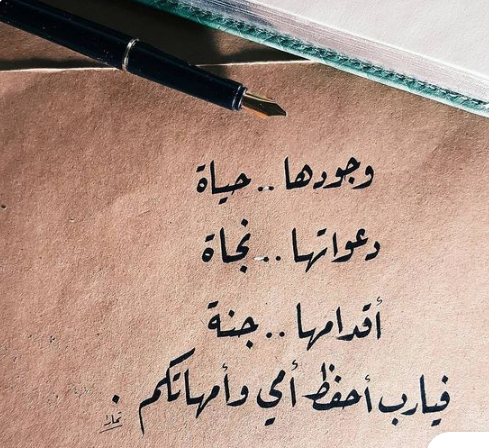 وجودها .. حياة
دعواتها .. نجاة
أقدامها .. جنة
فيارب أحفظ أمي وأمهاتكم .